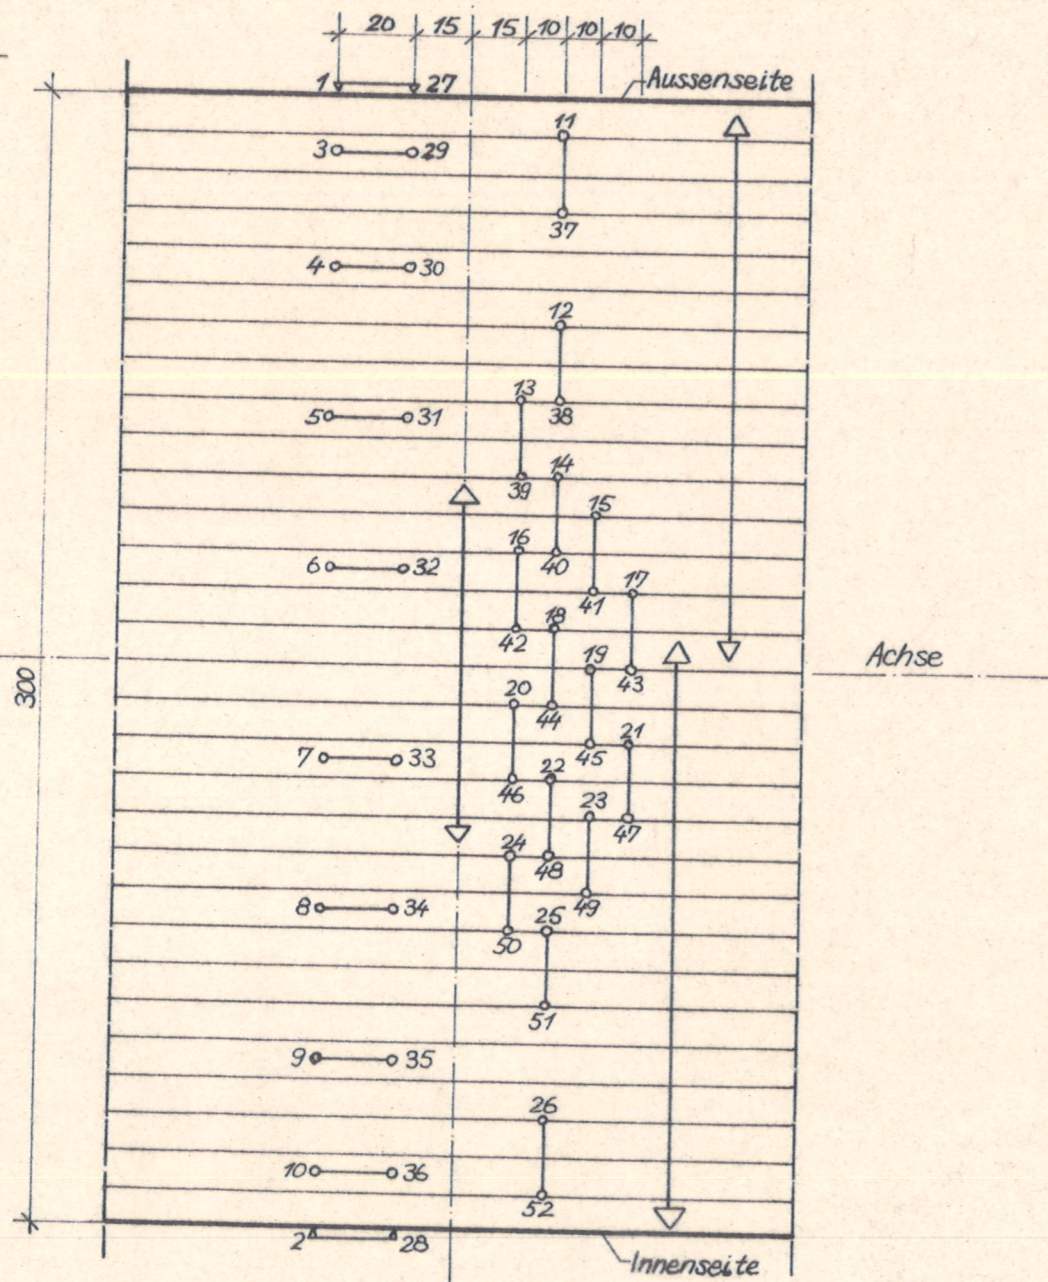 20 15 15 10 10 10
1 27 Aussenseite
11
3 29
37
4 30
12
13
5 31 38
14
39
15
16
6 32 40
17
41
18
42
19 Achse
43
300
20
44
21
45
7 33
22
46
23
47
24
48
8 34 49
25
50
51
9 35
26
10 36
52
2 28
Innenseite